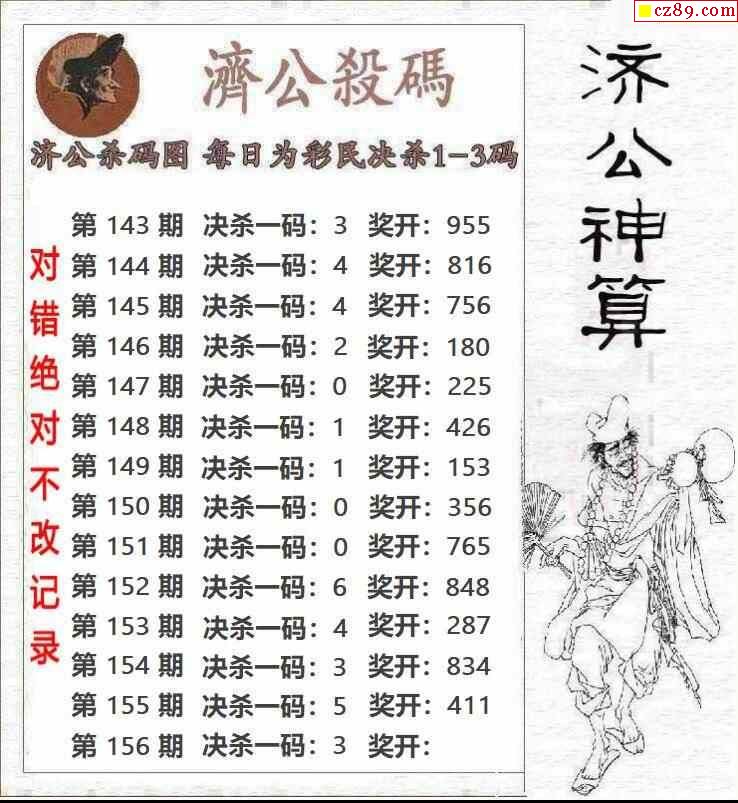 cz89.com
濟公殺碼
济公杀码图 每日为彩民决杀1-3码
第 143 期 决杀一码：3 奖开：955
第 144 期 决杀一码：4 奖开：816
第 145 期 决杀一码：4 奖开：756
第 146 期 决杀一码：2 奖开：180
第 147 期 决杀一码：0 奖开：225
第 148 期 决杀一码：1 奖开：426
第 149 期 决杀一码：1 奖开：153
第 150 期 决杀一码：0 奖开：356
第 151 期 决杀一码：0 奖开：765
第 152 期 决杀一码：6 奖开：848
第 153 期 决杀一码：4 奖开：287
第 154 期 决杀一码：3 奖开：834
第 155 期 决杀一码：5 奖开：411
第 156 期 决杀一码：3 奖开：
对错绝对不改记录
济公神算